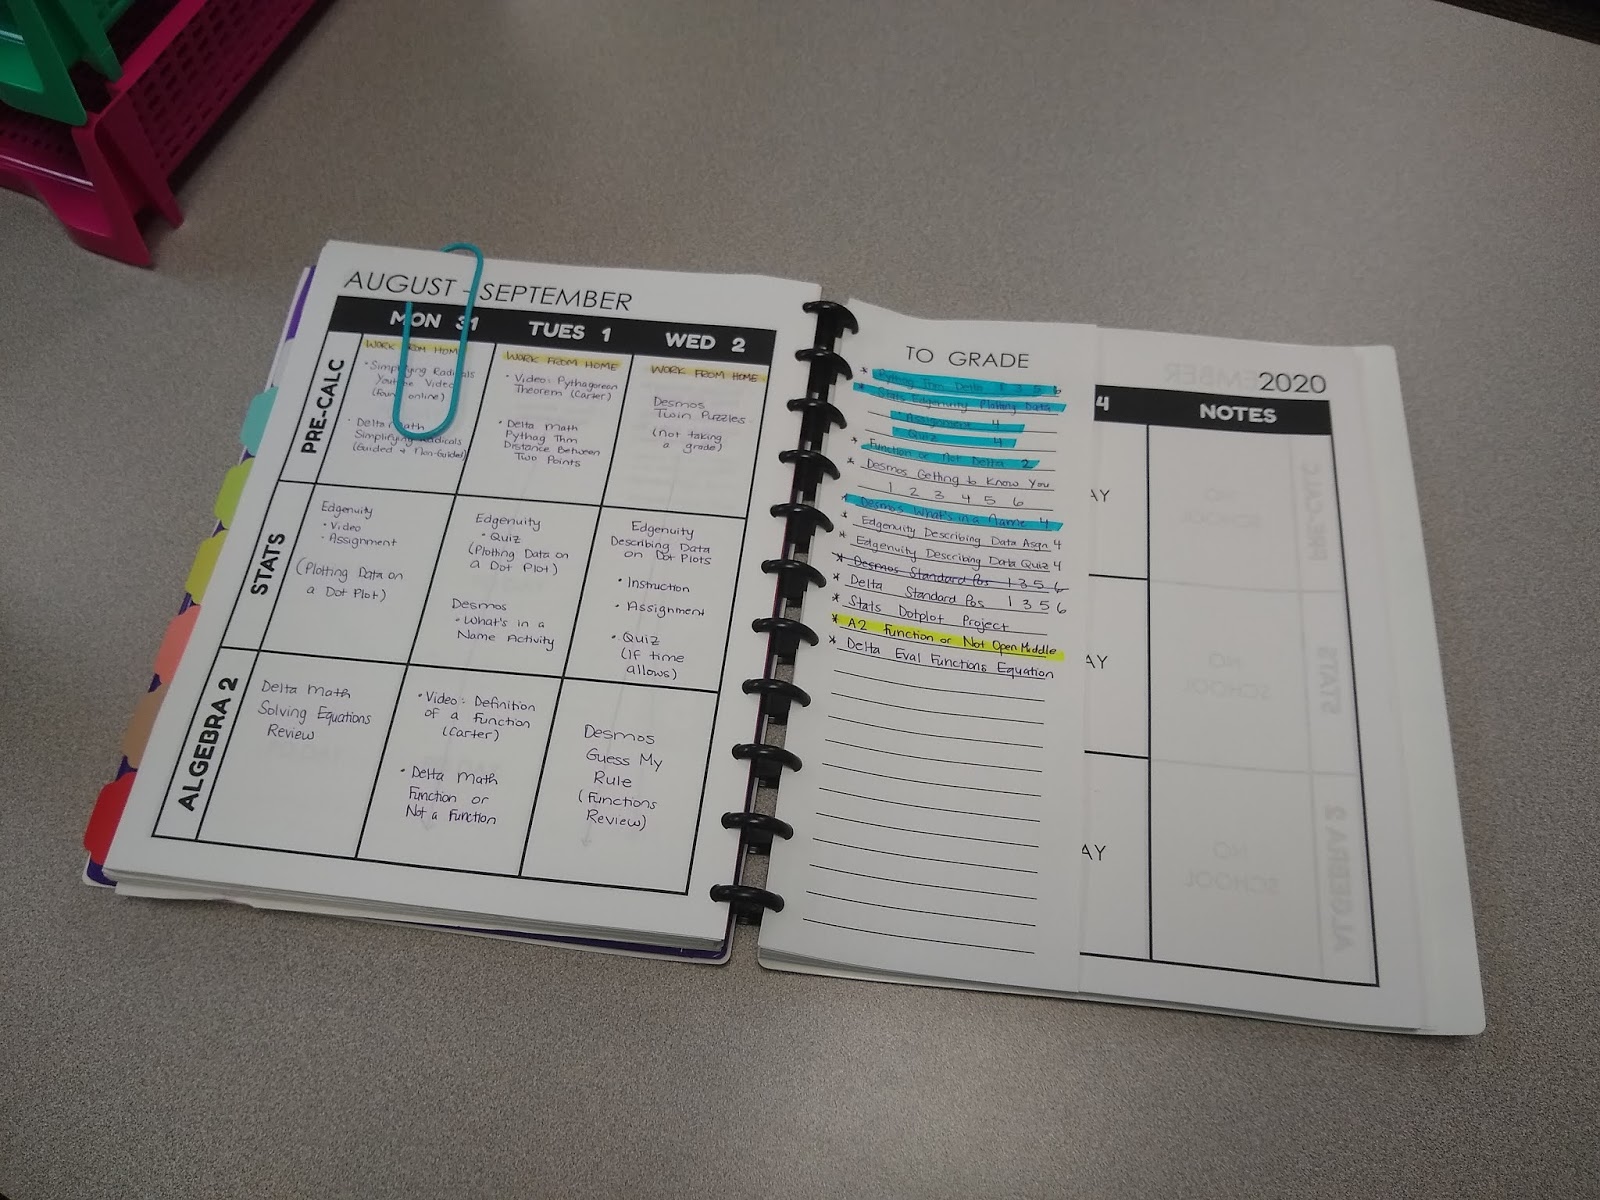 AUGUST - SEPTEMBER
MON 31
TUES 1
WED 2
PRE-CALC
WORK FROM HOME
• Simplifying Radicals
Video
(Found online)
• Delta Math
Simplifying Radicals
(Guided + Non-Guided)
WORK FROM HOME
• Video: Pythagorean
Theorem (Carter)
• Delta Math
Pythag Thm
Distance Between
Two Points
WORK FROM HOME
Desmos
Twin Puzzles
(Not taking
a grade)
STATS
Edgenuity
• Video
• Assignment
(Plotting Data on
a Dot Plot)
Edgenuity
• Quiz
(Plotting Data on
a Dot Plot)
Desmos
• What's in a
Name Activity
Edgenuity
Describing Data
on Dot Plots
• Instruction
• Assignment
• Quiz
(If time
allows)
ALGEBRA 2
Delta Math
Solving Equations
Review
• Video: Definition
of a Function
(Carter)
• Delta Math
Function or
Not a Function
Desmos
Guess My
Rule
(Functions
Review)
TO GRADE
* Pythag Thm Delta 1 3 5 6
* Stats Edgenuity Plotting Data
Assignment 4
Quiz 4
* Function or Not Delta 2
* Desmos Getting to Know You
1 2 3 4 5 6
* Desmos What's in a Name 4
* Edgenuity Describing Data Asgn 4
* Edgenuity Describing Data Quiz 4
* Desmos Standard Pos 1 3 5 6
* Delta Standard Pos 1 3 5 6
* Stats Dotplot Project
* A2 Function or Not Open Middle
* Delta Eval Functions Equation
2020
4
NOTES
AY
AY
AY